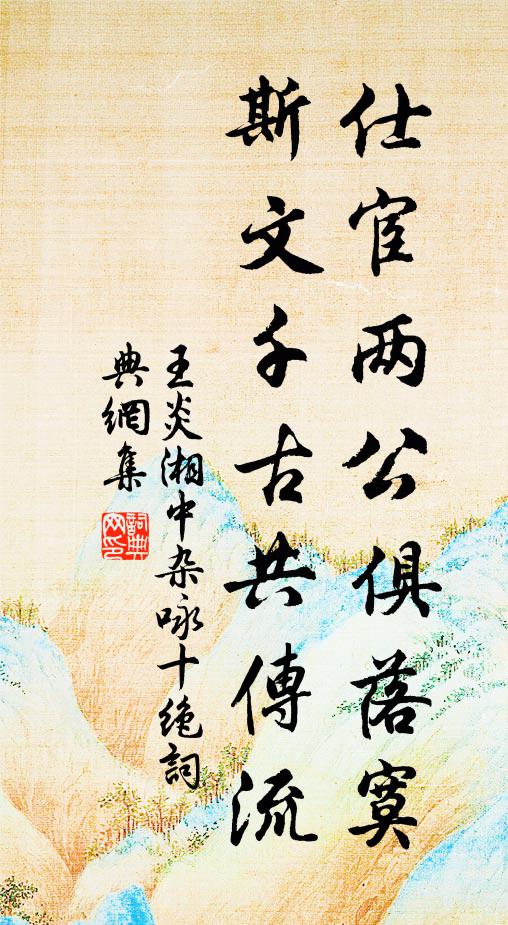 仕宦两公俱落寞
斯文千古共傳流
王炎湘中杂咏十绝詞
典網集
詞典网印